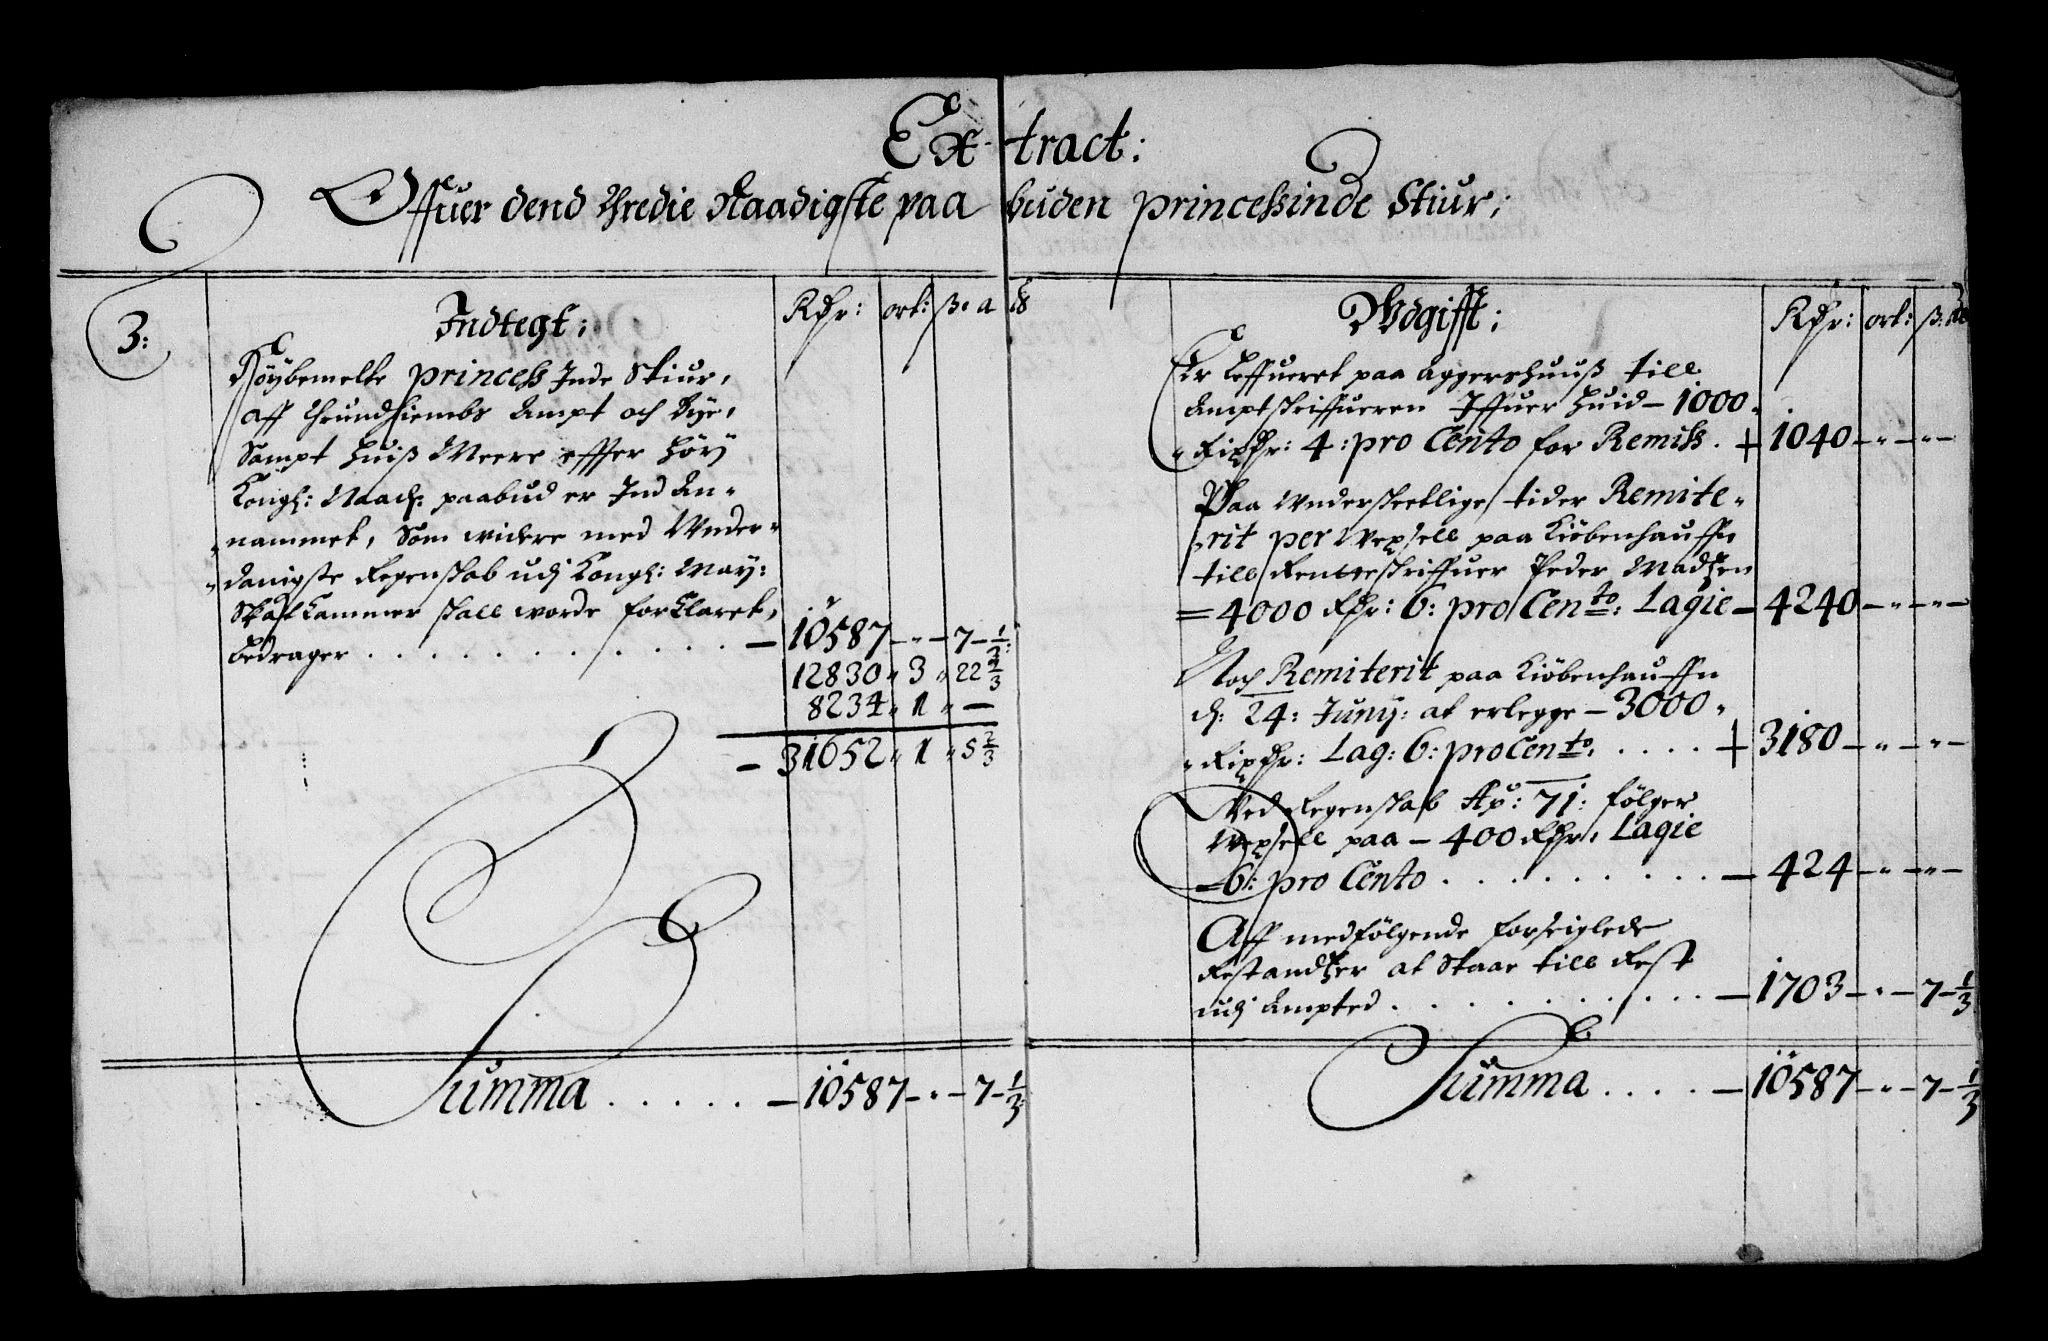 Extract:
Offuer dend Tredie Naadigste paabuden princessinde Stiur;
3:
Indtegt;
Rdr: ort: ß: a
Höybemelte princess Inde Skiur,
aff Trundhiembs Ampt och Bye,
Sampt huiß Meere effter höy
Kongl: Naads: paabud er Ind An-
nammet, Som widere med Under-
danigste Regenskab udj Kongl: May:
Skat Kammer skall worde forklaret,
bedrager . . . . . . . . . . — 10587 – " – 7 – 1/3:
12830 " 3 " 22 2/3
8234 " 1 " —
— 31652 " 1 " 5 2/3
Summa . . . . . — 10587 – " – 7 – 1/3:
Udgifft;
Rdr: ort: ß:
Er leffueret paa Aggershuuß till
Amptskriffueren Iffuer Huid – 1000
Rixdr: 4: pro Cento for Remiss. + 1040 – " – " –
Paa Underskeedlige tider Remite-
rit per Wexsell paa Kiöbenhauffn
till Renteskriffuer Peder Madtzen
= 4000 Rdr: 6: pro Cento: Lagie – 4240 – " – " –
Noch Remiterit paa Kiöbenhauffn
d: 24: Junij: at erlegge – 3000
Rixdr: Lag: 6: pro Cento. . . . . + 3180 – " – " –
Ved Regenskab Ao: 71: fölger
Wexsell paa – 400 Rdr: Lagie
– 6: pro Cento . . . . . . . . . — 424 – " – " –
Aff medfölgende forseiglede
Restandtzer at Staae till Rest
udj Ampted . . . . . . . . . . — 1703 – " – 7 – 1/3
Summa . . . . — 10587 – " – 7 – 1/3